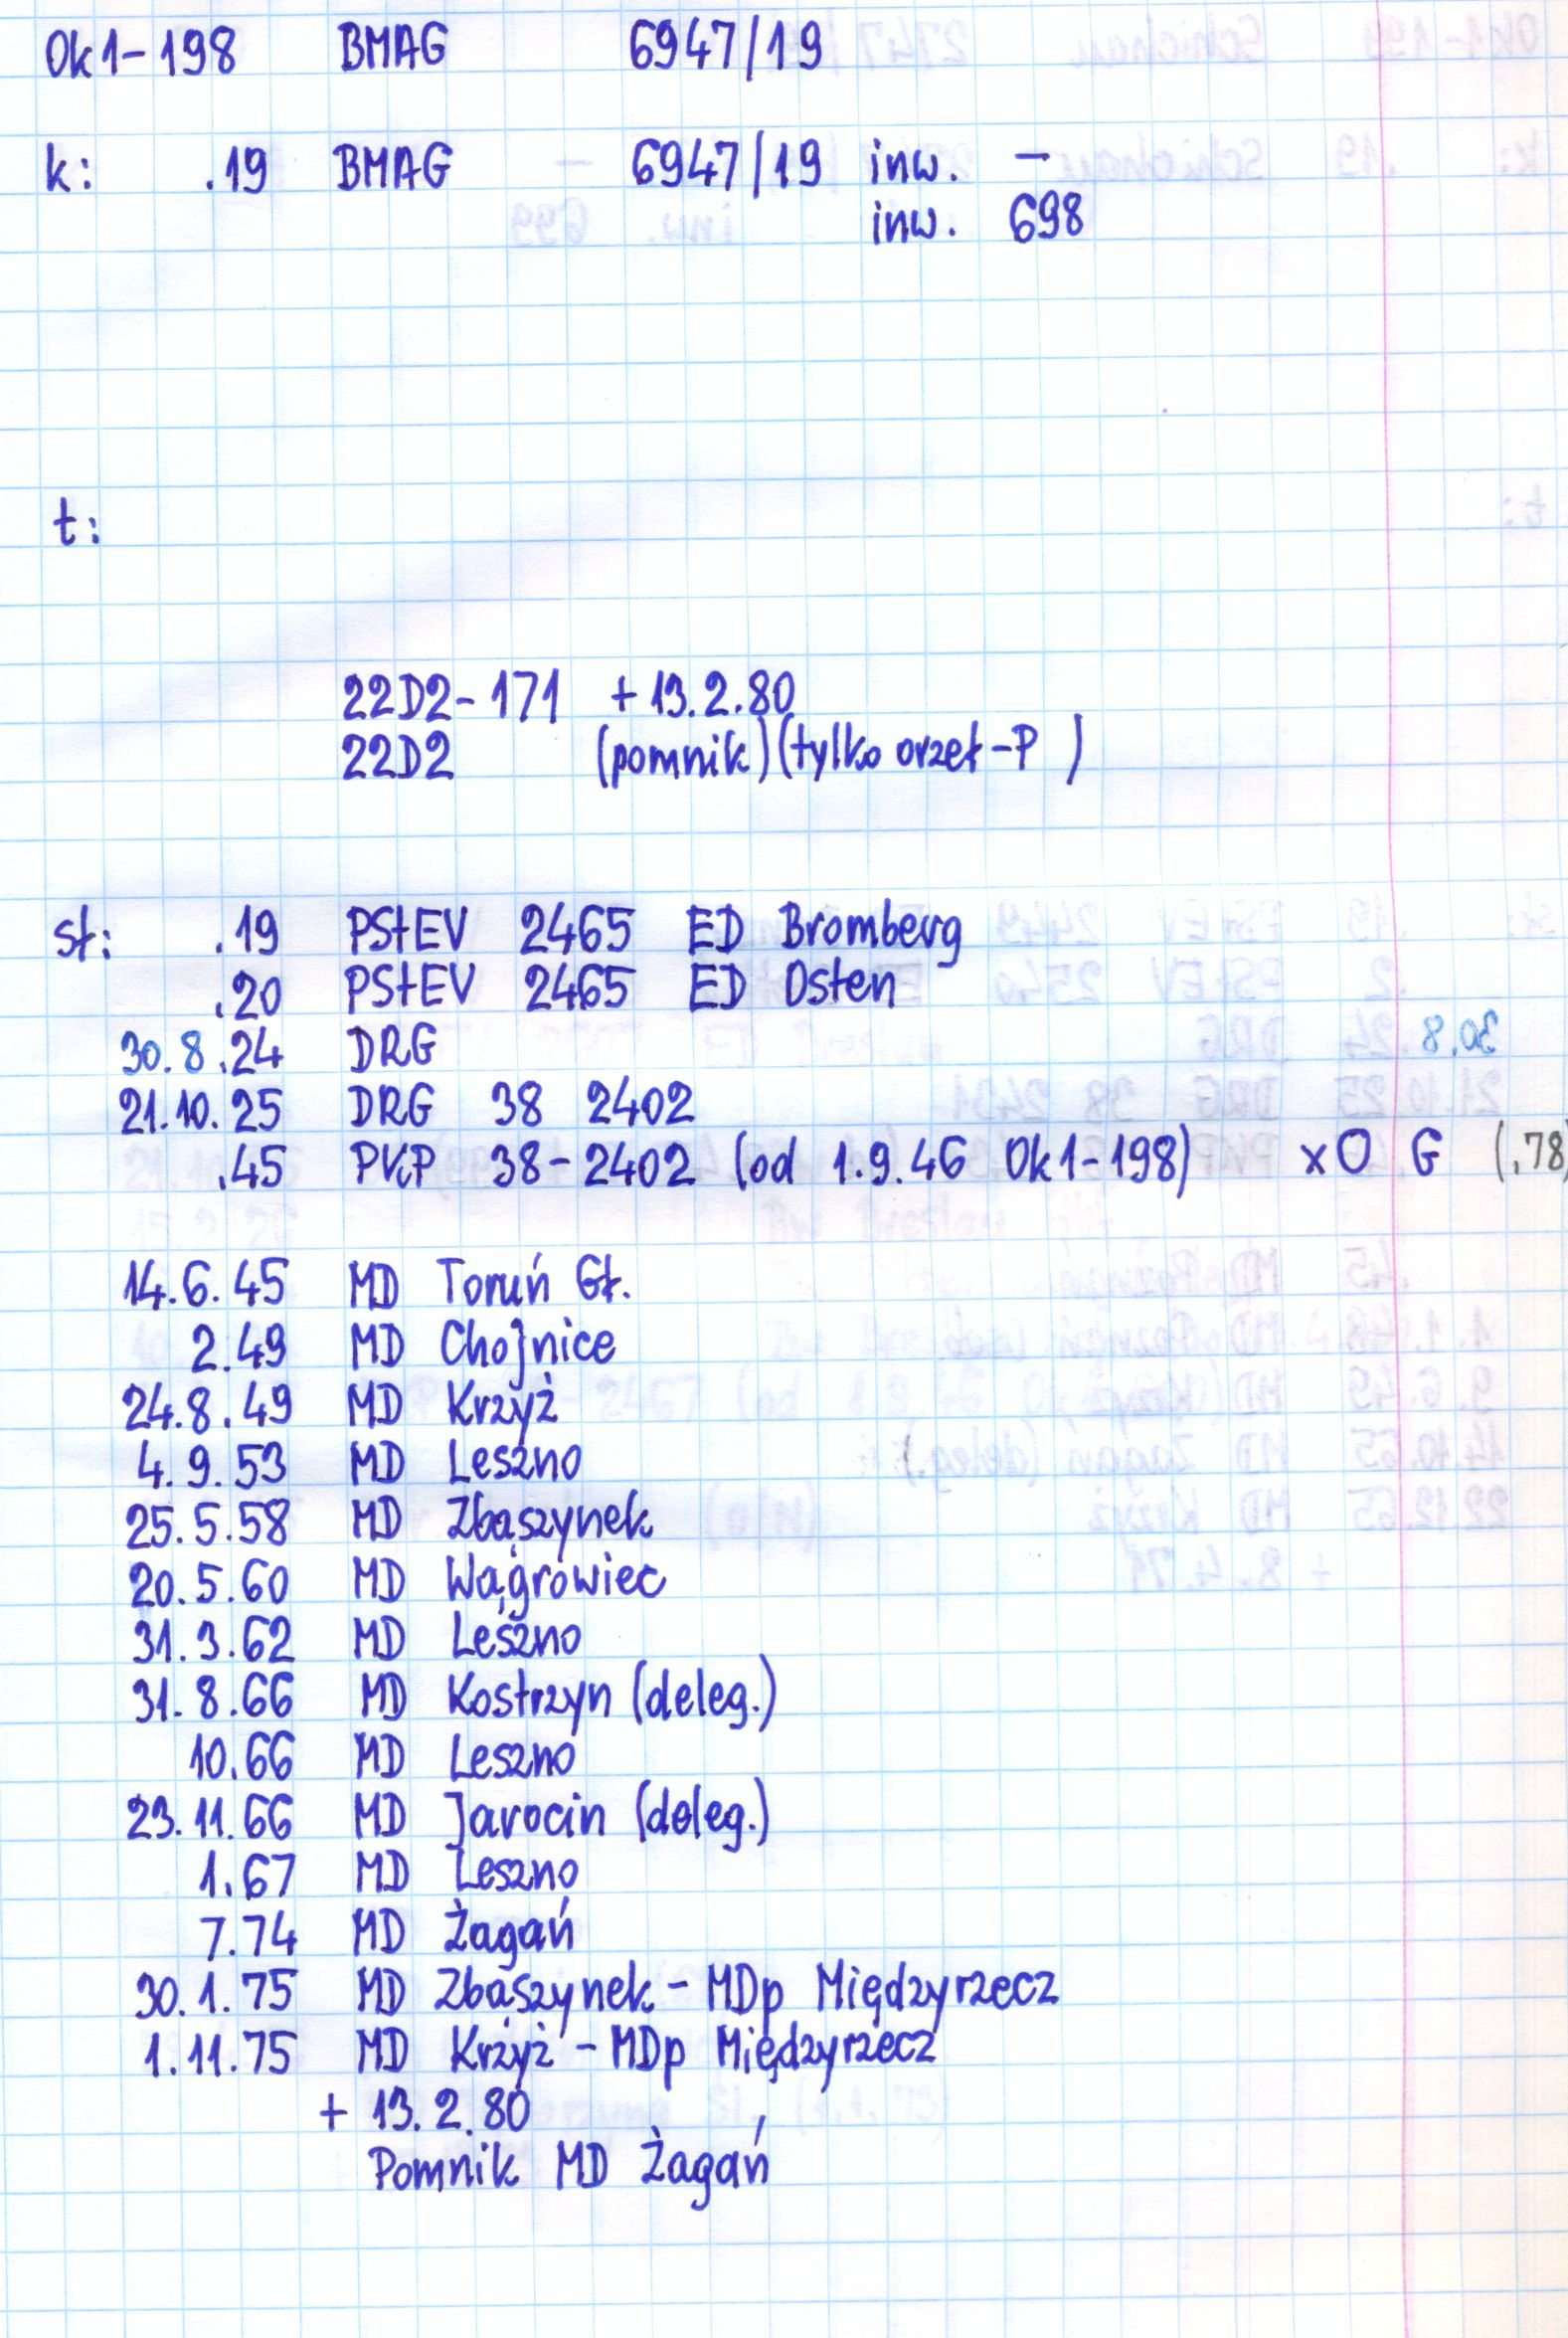 Ok1-198 BMAG 6947/19
k: .19 BMAG 6947/19 inw. –
inw. 698
t:
22D2-171 + 13.2.80
22D2 (pomnik) (tylko orzeł-P )
sł: .19 PStEV 2465 ED Bromberg
.20 PStEV 2465 ED Osten
30.8.24 DRG
21.10.25 DRG 38 2402
.45 PKP 38-2402 (od 1.9.46 Ok1-198) xO G (.78)
14.6.45 MD Toruń Gł.
2.49 MD Chojnice
24.8.49 MD Krzyż
4.9.53 MD Leszno
25.5.58 MD Zbąszynek
20.5.60 MD Wągrowiec
31.3.62 MD Leszno
31.8.66 MD Kostrzyn (deleg.)
10.66 MD Leszno
23.11.66 MD Jarocin (deleg.)
1.67 MD Leszno
7.74 MD Żagań
30.1.75 MD Zbąszynek - MDp Międzyrzecz
1.11.75 MD Krzyż - MDp Międzyrzecz
+ 13.2.80
Pomnik MD Żagań